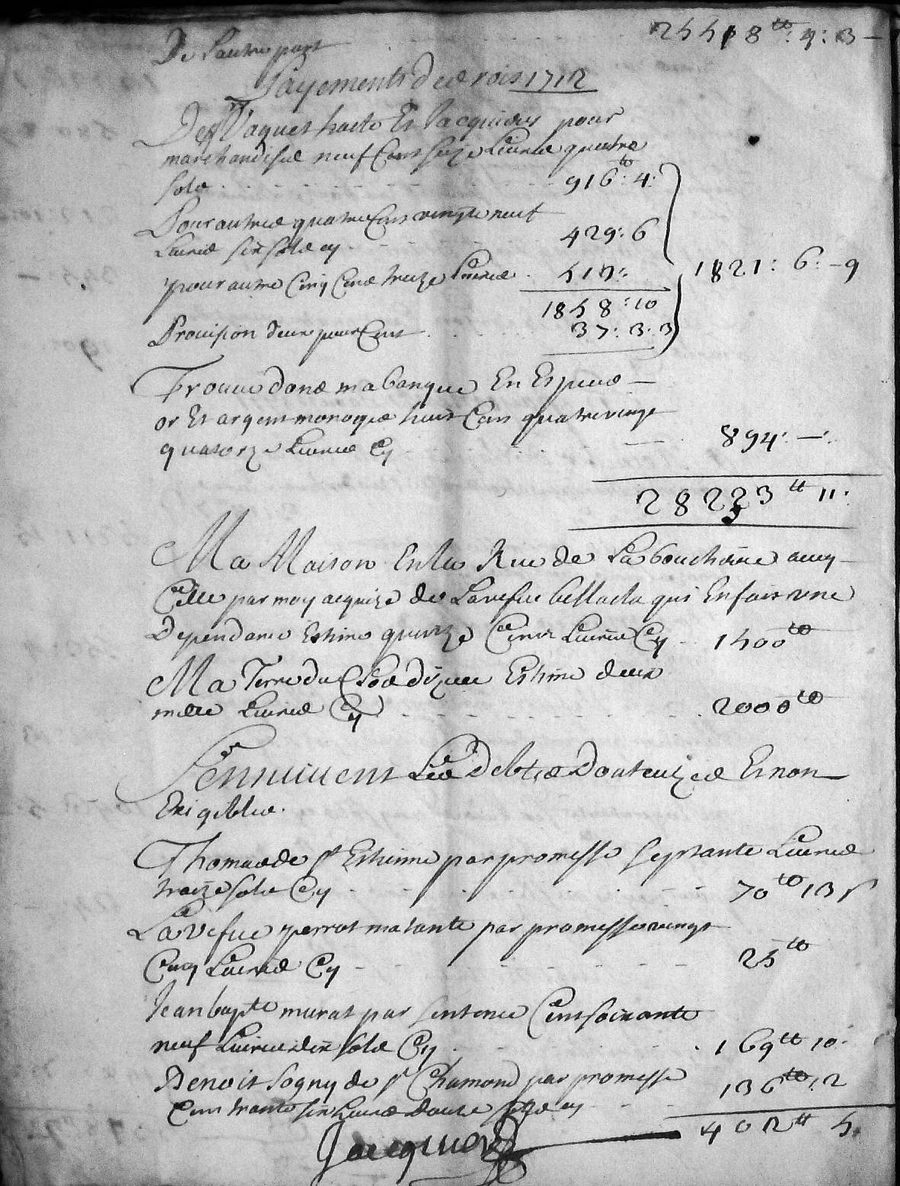 De Lautre part 25518ᵗᵗ: 4: 3 –
Payements des rois 1712
Des Jacquier pour
marchandise neuf Cent seize Livres quatre
sols 916ᵗᵗ: 4:
Pour autres quatre Cens vingt neuf
Livres six sols cy 429: 6
pour autre Cinq Cens treize Livres 513:
1858: 10
1821: 6: – 9
Provision deux pour Cent 37: 3: 3
Trouvé dans ma banque En Especes –
or Et argent monoyé huit Cens quatre vingt
quatorze Livres Cy 894: –:
28233ᵗᵗ 11:
Ma Maison En la Rue de La boucherie avec
Celle par moy acquize de La vefve qui En fait une
Dependance Estimé quinze Cents Livres Cy 1500ᵗᵗ
Ma Terre du Clos Estimé deux
mille Livres Cy 2000ᵗᵗ
S'ensuivent Les Debtes Douteuzes Et non
Exigibles.
Thomas de Sᵗ Estienne par promesse septante Livres
traize sols Cy 70ᵗᵗ 13 s
La vefve perrot ma tante par promesse vingt
Cinq Livres Cy 25ᵗᵗ
Jean bapᵗᵉ murat par sentence Cent soixante
neuf Livres dix sols Cy 169ᵗᵗ 10:
Benoit Sogny de Sᵗ Chamond par promesse
Cent trante six Livres douze sols cy 136ᵗᵗ: 12
402ᵗᵗ 5.
Jacquier